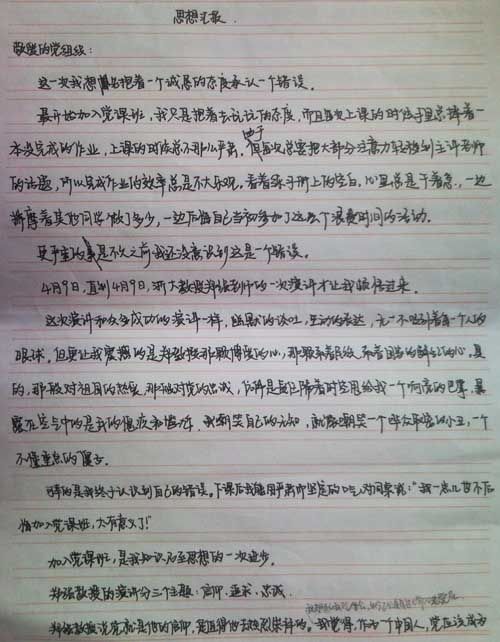 思想汇报
敬爱的党组织：
这一次我想抱着一个诚恳的态度承认一个错误。
最开始加入党课班，我只是抱着去试试的态度，而且每次上课的时候手里总捧着一
本没完成的作业，上课的时候总不那么严肃。由于每次总要把大部分注意力转移到主讲老师
的话题，所以完成作业的效率总是不大乐观，看着练习册上的空白，心里总是干着急，一边
揣摩着其他同学做了多少，一边后悔自己当初参加了这么个浪费时间的活动。
更严重的是不久之前我还没意识到这是一个错误。
4月9日，直到4月9日，浙大教授郑强老师的一次演讲才让我醒悟过来。
这次演讲和众多成功的演讲一样，幽默的谈吐，生动的表达，无一不吸引着每一个人的
眼球。但更让我震撼的是郑强教授那颗博爱的心，那颗系着民族、系着国家的赤子的心。是
的，那般对祖国的热爱，那般对党的忠诚，仿佛是无压隔着时空甩给我一个响亮的巴掌。暴
露在空气中的是我的僵硬和。我嘲笑自己的无知，就像嘲笑一个哗众取宠的小丑，一个
不懂重点的傻子。
可喜的是我终于认识到自己的错误。下课后我用严肃而坚定的口气对同桌说："我一点儿也不后
悔加入党课班，太有意义了！"
加入党课班，是我知识乃至思想的一次进步。
郑强教授的演讲分三个主题：信仰、追求、忠诚。
郑强教授说党就是他的信仰，是值得他去的。我觉得，作为一个中国人，党应该成为